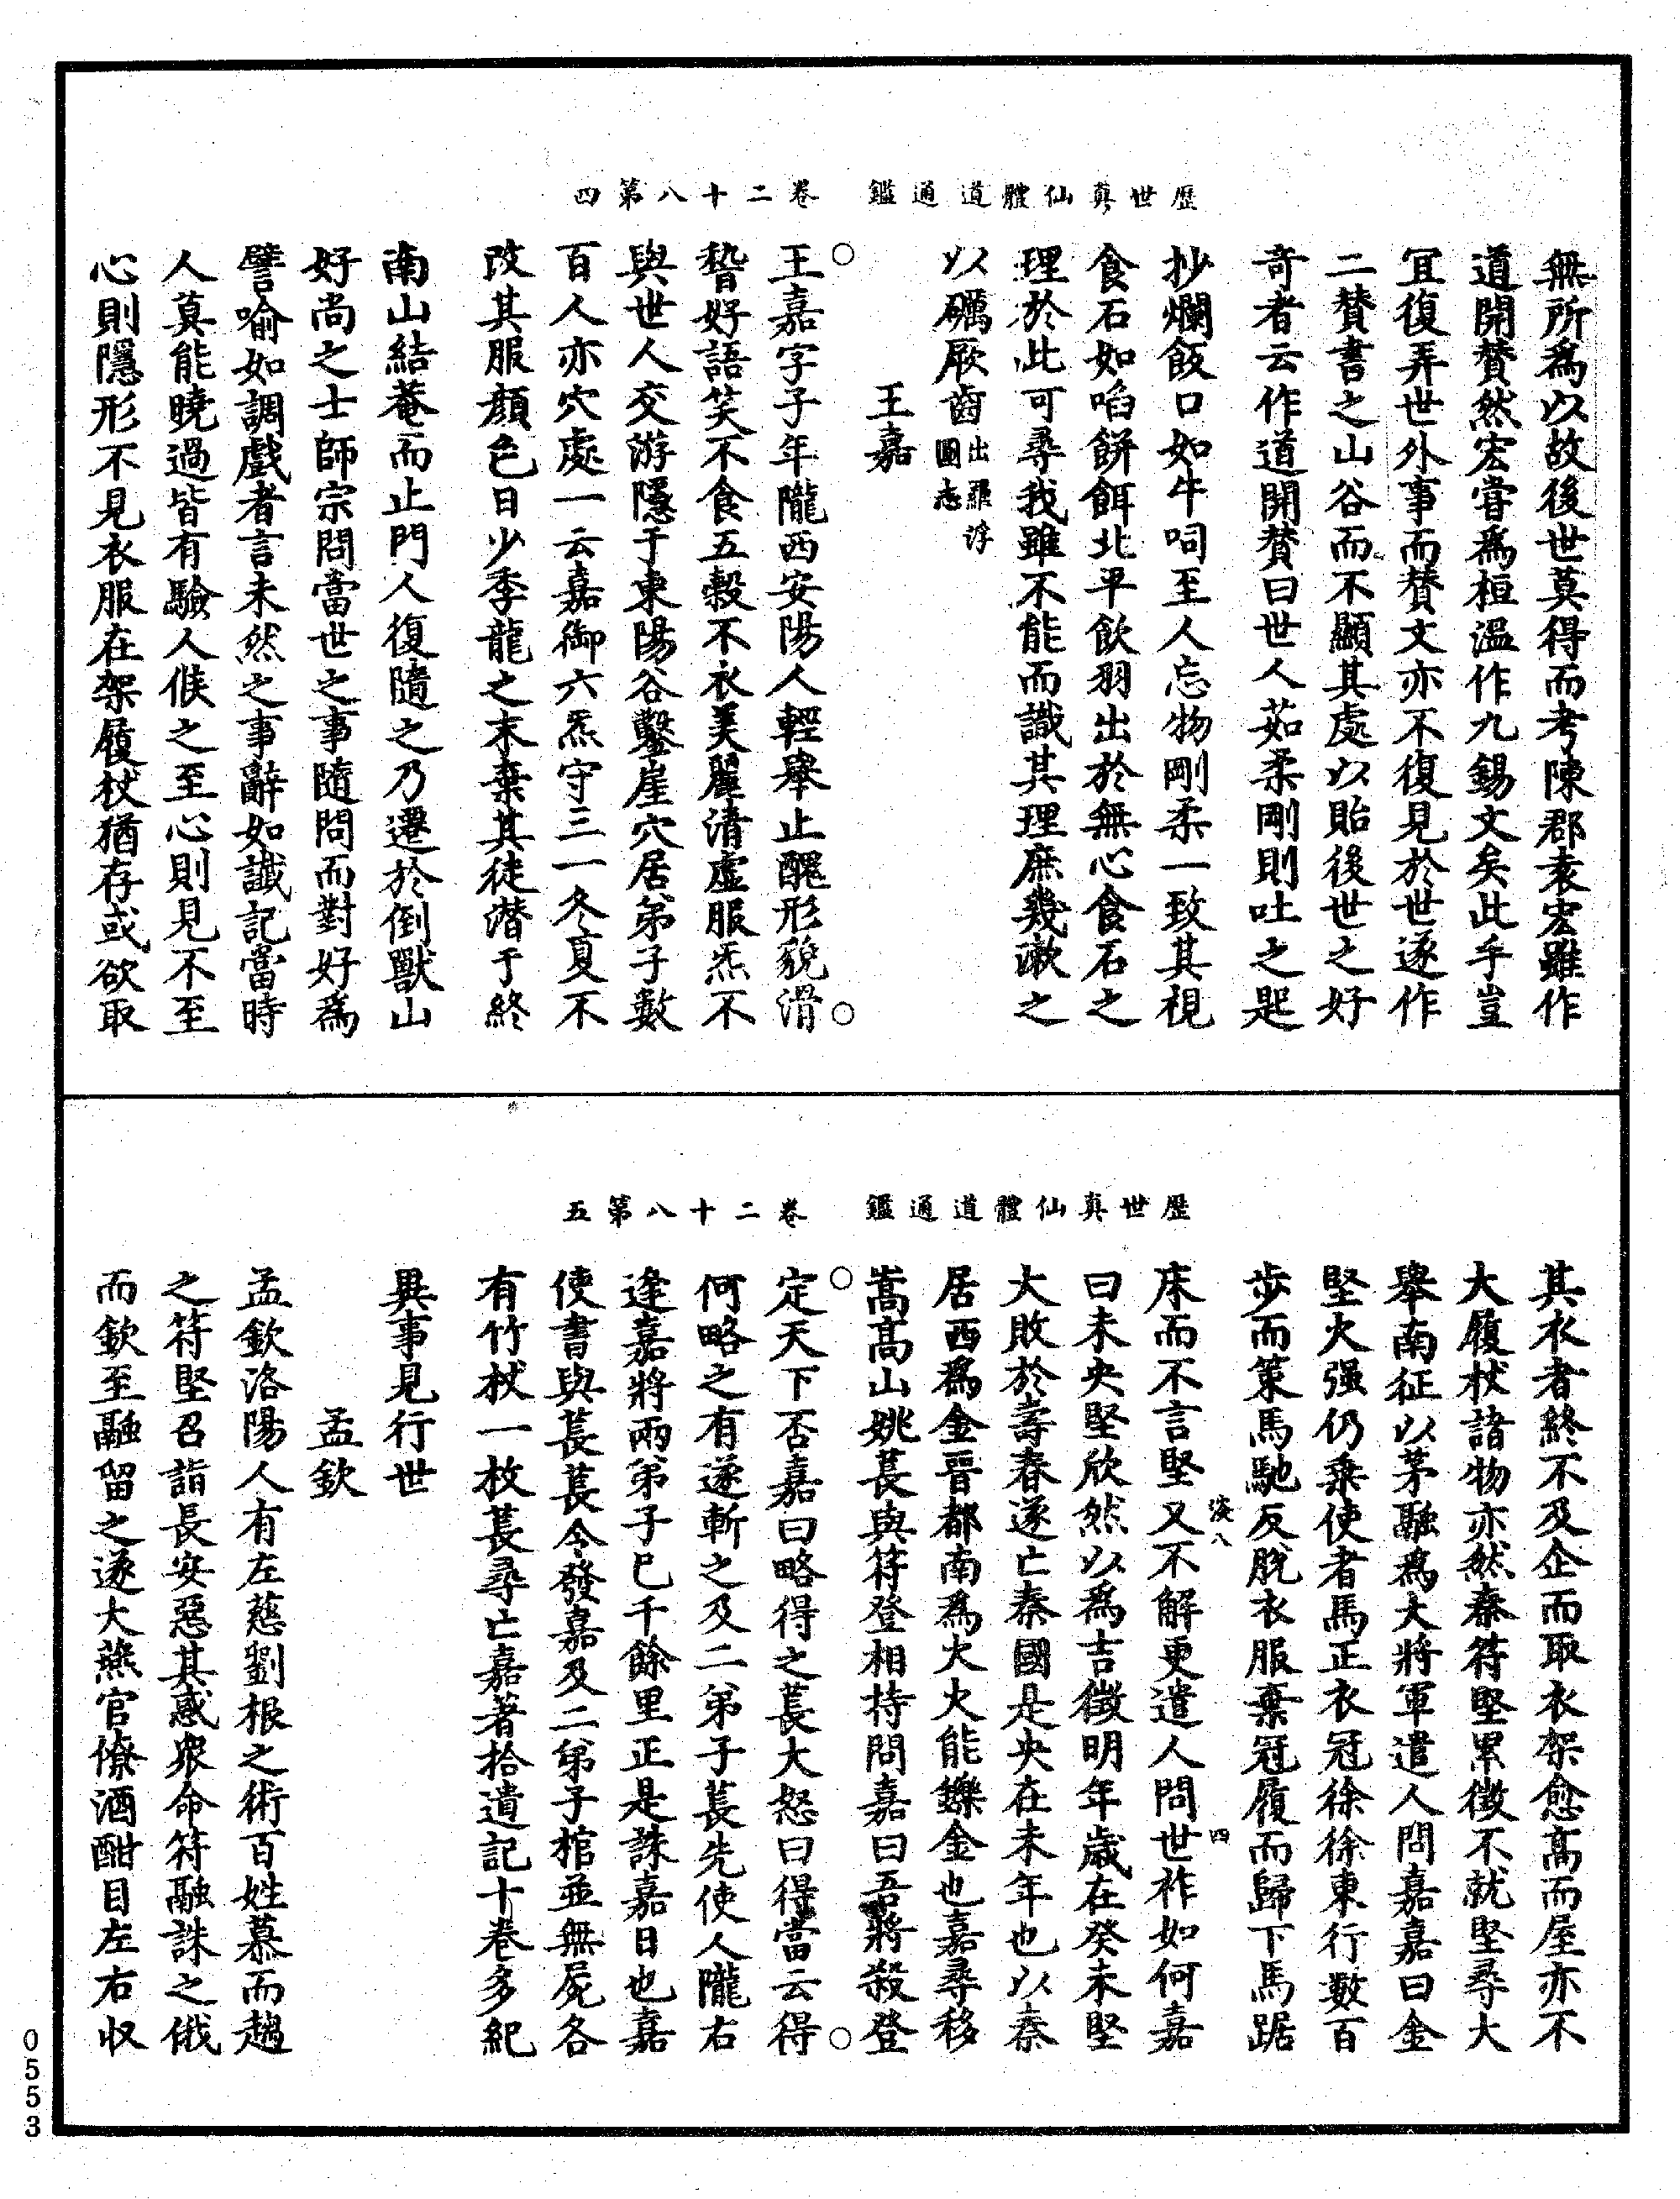 歷世真仙體道通鑑　卷二十八第四
無所爲以故後世莫得而考陳郡袁宏雖作
道開賛然宏嘗爲桓溫作九錫文矣此手豈
冝復弄世外事而賛文亦不復見於世遂作
二賛書之山谷而不顯其處以貽後世之好
奇者云作道開賛曰世人茹柔剛則吐之匙
抄爛飯口如牛呞至人忘物剛柔一致其視
食石如啗餅餌北平飲羽出於無心食石之
理於此可尋我雖不能而識其理庶幾漱之
以礪厥齒出羅浮圖志
王嘉
王嘉字子年隴西安陽人輕舉止醜形貌滑
稽好語笑不食五穀不衣美麗清虛服炁不
與世人交游隱于東陽谷鑿崖穴居弟子數
百人亦穴處一云嘉御六炁守三一冬夏不
改其服顔色日少季龍之末棄其徒潛于終
南山結菴而止門人復隨之乃遷於倒獸山
好尚之士師宗問當世之事隨問而對好爲
譬喻如調戲者言未然之事辭如讖記當時
人莫能曉過皆有驗人候之至心則見不至
心則隱形不見衣服在架履杖猶存或欲取
歷世真仙體道通鑑　卷二十八第五
其衣者終不及企而取衣架愈高而屋亦不
大履杖諸物亦然秦符堅累徵不就堅尋大
舉南征以茅融爲大將軍遣人問嘉嘉曰金
堅火强仍乗使者馬正衣冠徐徐東行數百
步而策馬馳反脫衣服棄冠履而歸下馬踞
淡八　四
床而不言堅又不解更遣人問世祚如何嘉
曰未央堅欣然以爲吉徵明年歲在癸未堅
大敗於壽春遂亡秦國是央在未年也以秦
居西爲金晋都南爲火火能鑠金也嘉尋移
嵩高山姚萇與符登相持問嘉曰吾將殺登
定天下否嘉曰略得之萇大怒曰得當云得
何略之有遂斬之及二弟子萇先使人隴右
逢嘉將兩弟子已千餘里正是誅嘉日也嘉
使書與萇萇令發嘉及二弟子棺並無屍各
有竹杖一枚萇尋亡嘉著拾遺記十卷多紀
異事見行世
孟欽
孟欽洛陽人有左慈劉根之術百姓慕而趨
之符堅召詣長安惡其惑衆命符融誅之俄
而欽至融留之遂大燕官僚酒酣目左右收
0553